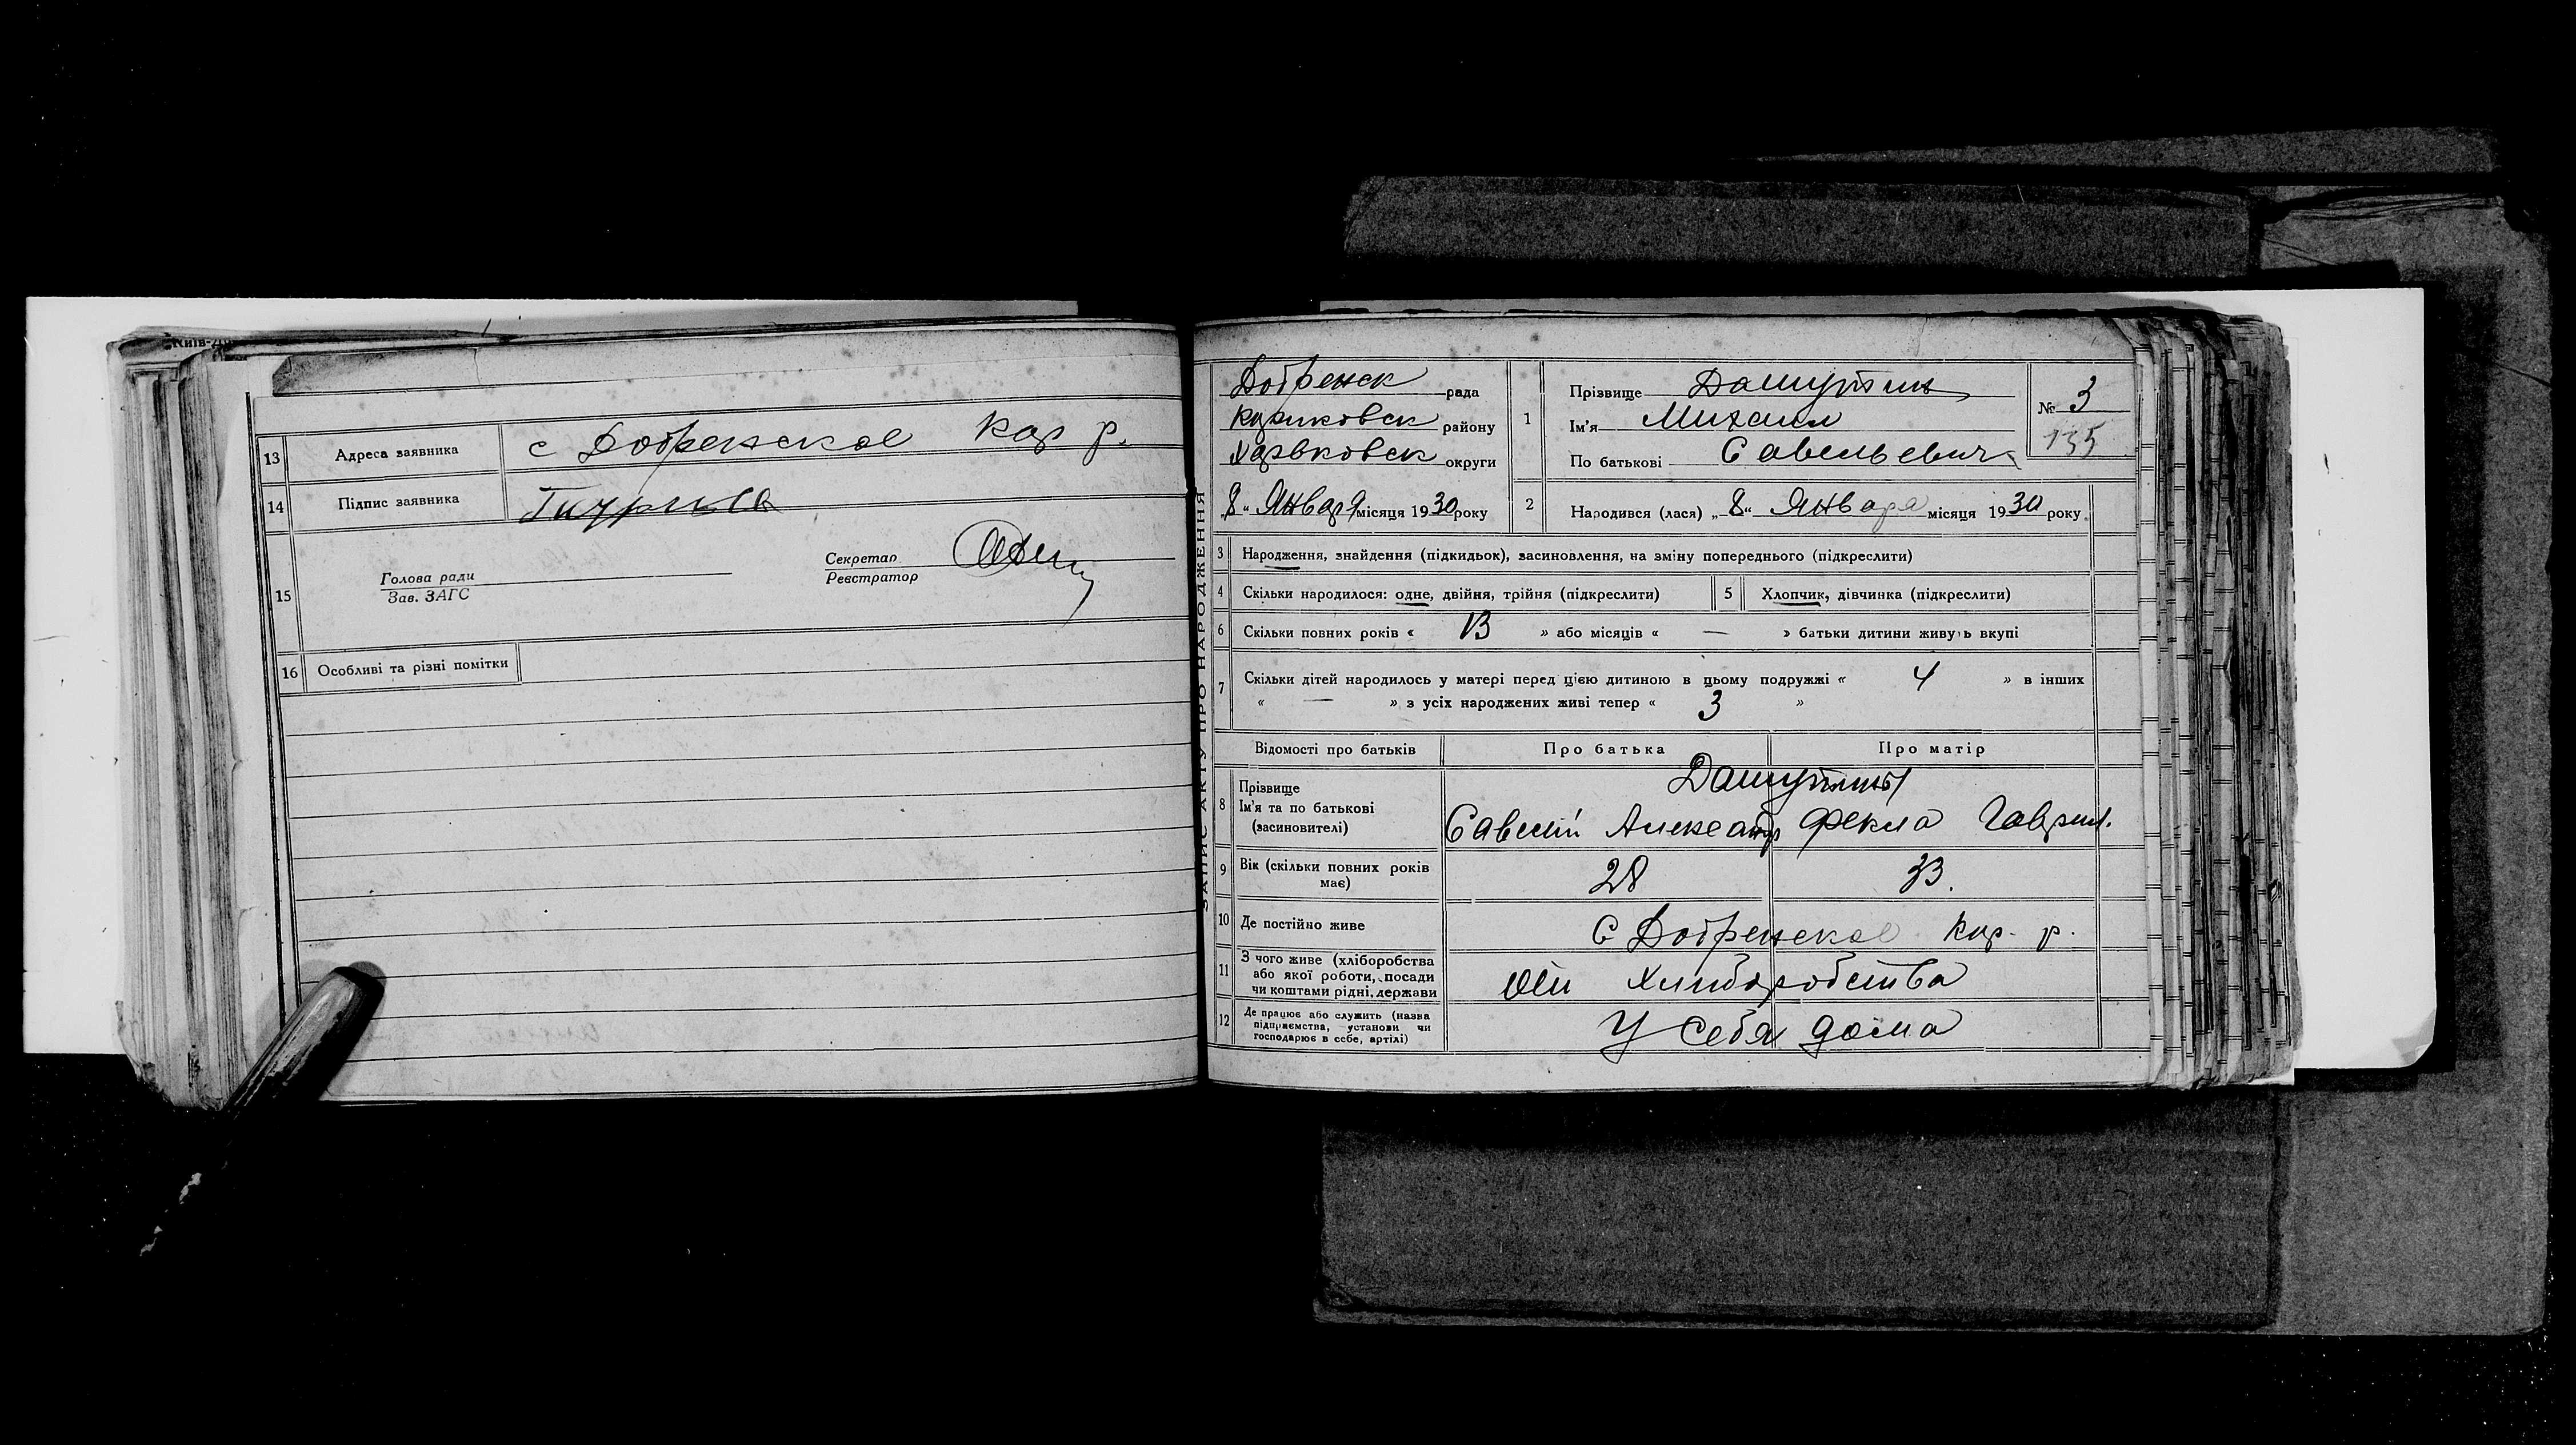 13 Адреса заявника с Добренское Кар р.
14 Підпис заявника
15 Голова ради
Зав. ЗАГС
Секретар
Реєстратор
16 Особливі та різні помітки
ЗАПИС АКТУ ПРО НАРОДЖЕННЯ
Добренск рада
району
Харьковск округи
8 „ Января місяця 1930 року
1 Прізвище Дашуткин
Ім'я Михаил
По батькові Савельевич
№ 3
135
2 Народився (лася) „ 8 “ Января місяця 1930 року
3 Народження, знайдення (підкидьок), засиновлення, на зміну попереднього (підкреслити)
4 Скільки народилося: одне, двійня, трійня (підкреслити) 5 Хлопчик, дівчинка (підкреслити)
6 Скільки повних років « 13 » або місяців « — » батьки дитини живуть вкупі
7 Скільки дітей народилось у матері перед цією дитиною в цьому подружжі « 4 » в інших
« — » з усіх народжених живі тепер « 3 »
Відомості про батьків Про батька Про матір
8 Прізвище
Ім'я та по батькові
(засиновителі)
Дашуткины
Савелий Александр Фекла Гаврил.
9 Вік (скільки повних років має) 28 33.
10 Де постійно живе С Добренское Кар. р.
11 З чого живе (хліборобства
або якої роботи, посади
чи коштами рідні, держави
Хлиборобства
12 Де працює або служить (назва
підприємства, установи чи
господарює в себе, артілі)
У себя дома